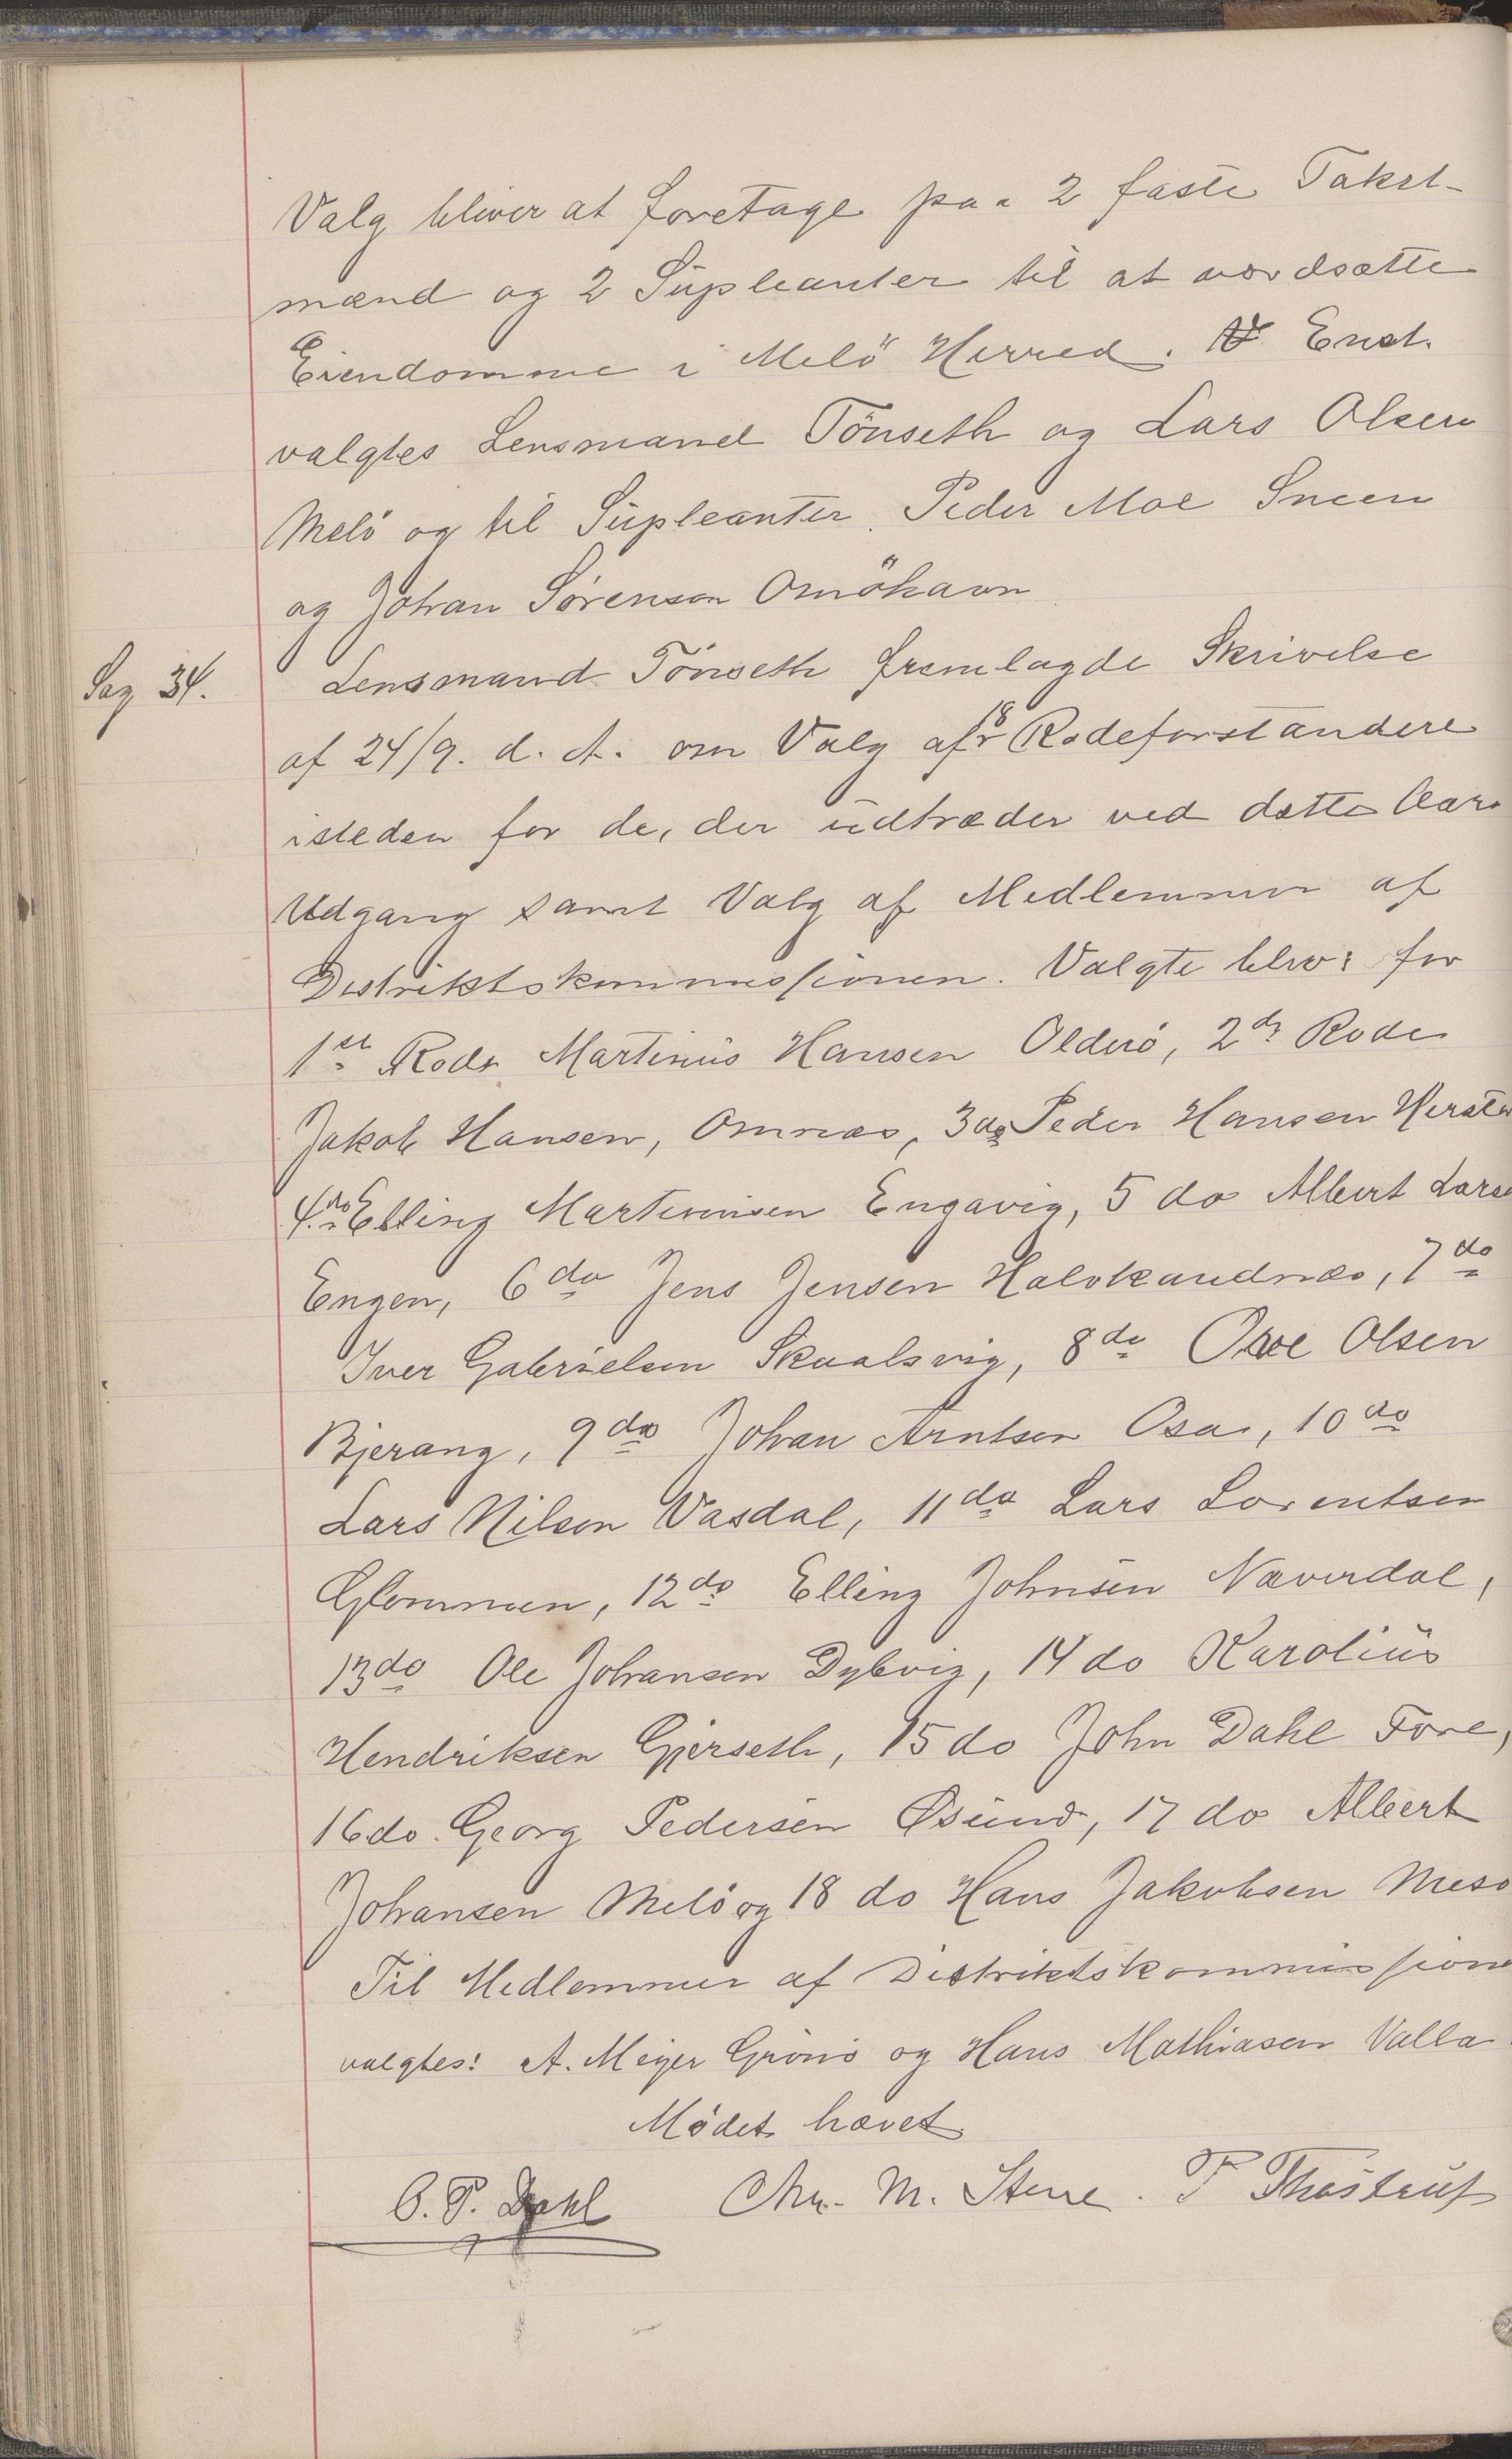 Valg bliver at foretage paa 2 faste Takst-
mænd og 2 Supleanter til at værdsætte
Eiendomme i Melö Herred. Enst.
valgtes Lensmand Tönseth og Lars Olsen
Melö og til Supleanter Peder Moe Sneen
og Johan Sörensen Omöhavn
Sag 34. Lensmand Tönseth fremlagde Skrivelse
af 24/9. d. A. om Valg af 18 Rodeforstandere
isteden for de, der udtræder ved dette Aars
Udgang samt Valg af Medlemmer af
Distriktskommissionen. Valgte blev: for
1ste Rode Martinus Hansen Olderö, 2de Rode
Jakob Hansen, Omnæs, 3do Peder Hansen
4do Elling Martinusen Engavig, 5 do Albert Larse
Engen, 6 do Jens Jensen Halvkandnæs, 7 do
Iver Gabrielsen Skaalsvig, 8 do Ove Olsen
Bjerang, 9 do Johan Arntsen Osa, 10 do
Lars Nilsen Vasdal, 11 do Lars Lorentsen
Glommen, 12 do Elling Johnsen Næverdal,
13 do Ole Johansen Dybvig, 14 do Karolius
Hendriksen Gjerseth, 15 do John Dahl Fore,
16 do. Georg Pedersen Øsund, 17 do Albert
Johansen Melö og 18 do Hans Jakobsen Mesö
Til Medlemmer af Distriktskommissione
valgtes: A. Meyer Grönö og Hans Mathiasen Valla
Mödet hævet
O. P. Dahl Chr. M. Stene. P Thostrup